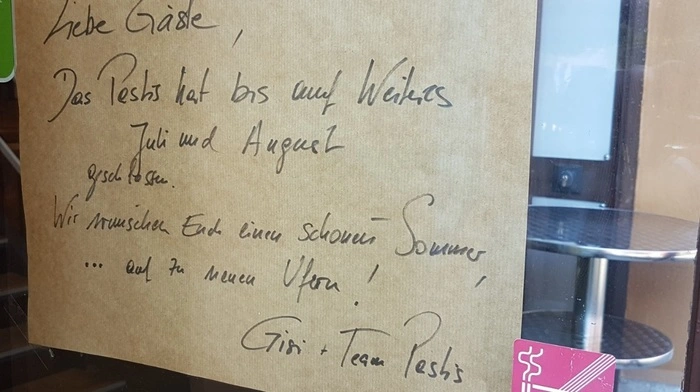 Liebe Gäste,
Das Pastis hat bis auf Weiteres
Juli und August
geschlossen.
Wir wünschen Euch einen schönen Sommer,
... auf zu neuen Ufern!
Gisi + Team Pastis